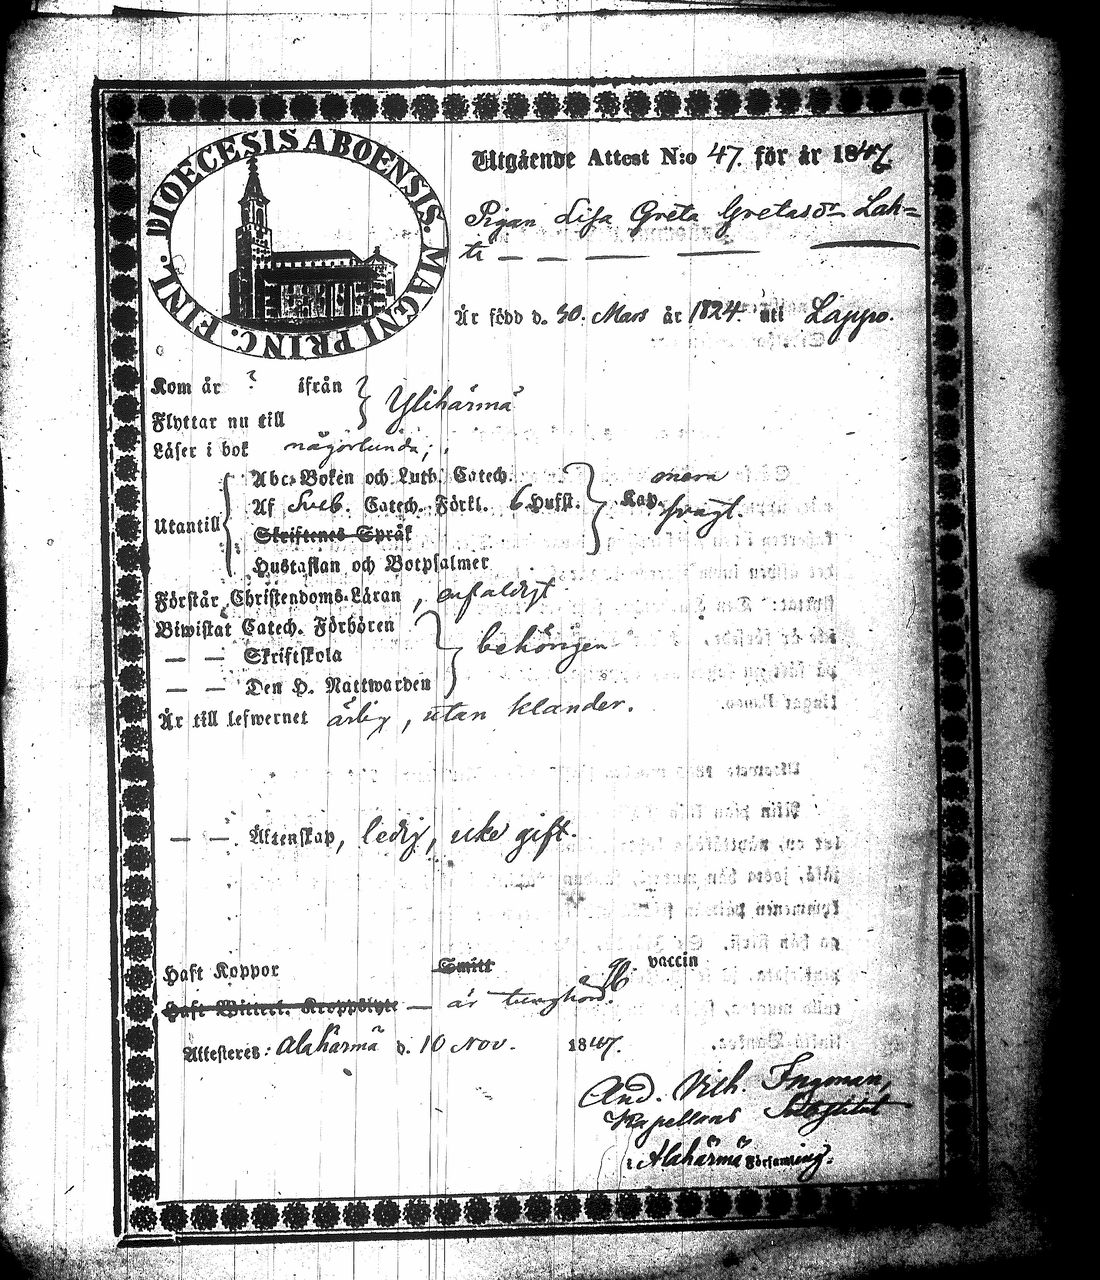 DIOECESIS ABOENSIS. MAGNI PRINC. FINL.
Utgående Attest N:o 47. för år 1847
Pigan Lisa Greta Gretasdr Lah=
ti — — — —
Är född d. 30. Mars år 1824. uti Lappo.
Kom år ? ifrån
Flyttar nu till } Ylihärmä
Läser i bok någorlunda;
Abc-Boken och Luth. Catech.
Utantill { Af Sveb. Catech. Förkl. 6 Hufst. } Kap. mera svagt.
Skriftenes Språk
Hustaflan och Botpsalmer
Förstår Christendoms-Läran, enfaldigt
Biwistat Catech. Förhören
— — Skriftskola } behörigen
— — Den H. Nattwarden
Är till lefwernet ärlig, utan klander.
— — Äktenskap, ledig, icke gift.
Haft Koppor Smitt vaccin
Haft Witterl. Kroppslyte — är tunghörd.
Attesteres: Alahärmä d. 10 Nov. 1847.
And. Vilh. Ingman,
Kapellans Substitut
i Alahärmä Församling.